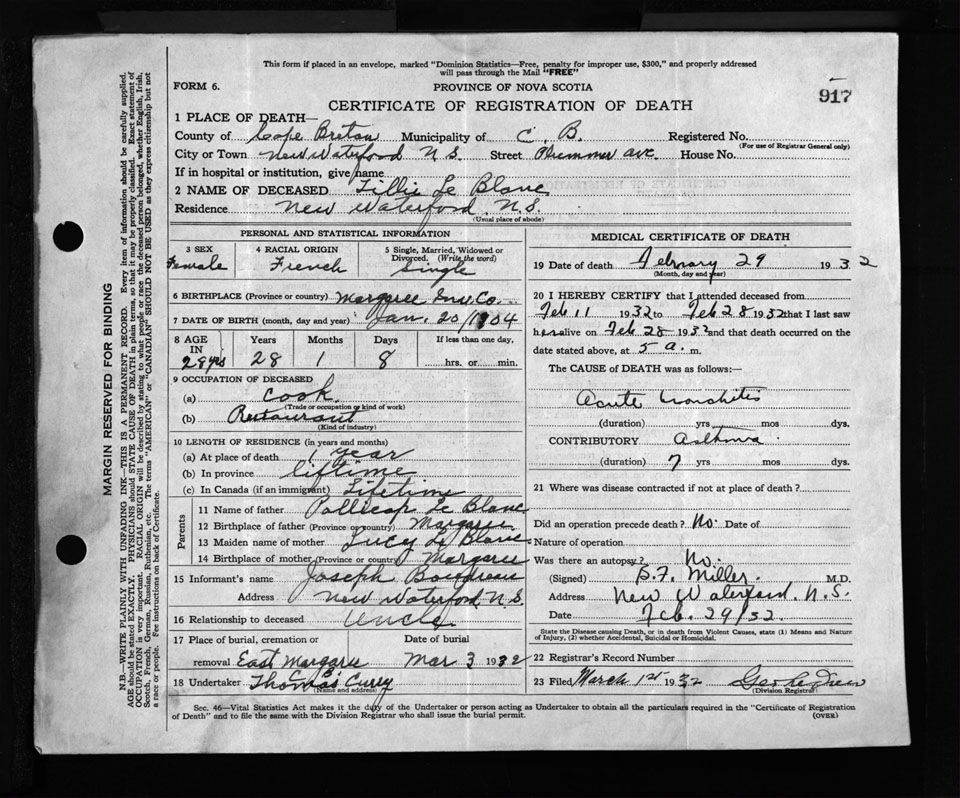 This form if placed in an envelope, marked "Dominion Statistics—Free, penalty for improper use, $300," and properly addressed
will pass through the Mail "FREE"
FORM 6.
PROVINCE OF NOVA SCOTIA
917
CERTIFICATE OF REGISTRATION OF DEATH
1 PLACE OF DEATH—
County of Cape Breton Municipality of C. B. Registered No.
(For use of Registrar General only)
City or Town New Waterford N S. Street Plummer ave. House No.
If in hospital or institution, give name
2 NAME OF DECEASED Lillie Le Blanc
Residence New Waterford N.S.
(Usual place of abode)
PERSONAL AND STATISTICAL INFORMATION
3 SEX 4 RACIAL ORIGIN 5 Single, Married, Widowed or
Divorced. (Write the word)
Female French Single
6 BIRTHPLACE (Province or country) Margaree Inv. Co.
7 DATE OF BIRTH (month, day and year) Jan. 20/1904
8 AGE IN Years Months Days If less than one day,
28 yrs 28 1 8 hrs. or min.
9 OCCUPATION OF DECEASED
(a) Cook
(Trade or occupation or kind of work)
(b) Restaurant
(Kind of industry)
10 LENGTH OF RESIDENCE (in years and months)
(a) At place of death 1 year
(b) In province lifetime
(c) In Canada (if an immigrant) Lifetime
Parents
11 Name of father Le Blanc
12 Birthplace of father (Province or country) Margaree
13 Maiden name of mother Lucy Le Blanc
14 Birthplace of mother (Province or country) Margaree
15 Informant's name Joseph Boudreau
Address New Waterford, N.S.
16 Relationship to deceased Uncle
17 Place of burial, cremation or Date of burial
removal East Margaree Mar 3 1932
18 Undertaker Thomas Curry
(Name and address)
MEDICAL CERTIFICATE OF DEATH
19 Date of death February 29 1932
(Month, day and year)
20 I HEREBY CERTIFY that I attended deceased from
Feb 11 1932 to Feb 28 1932 that I last saw
her alive on Feb 28 1932 and that death occurred on
date stated above, at 5 a. m.
The CAUSE of DEATH was as follows:—
Acute bronchitis
(duration) yrs mos dys.
CONTRIBUTORY Asthma
(duration) 7 yrs. mos. dys.
21 Where was disease contracted if not at place of death?
Did an operation precede death? No. Date of
Nature of operation
Was there an autopsy? No.
(Signed) S. F. Miller. M.D.
Address New Waterford. N.S.
Date Feb. 29/32.
State the Disease causing Death, or in death from Violent Causes, state (1) Means and Nature
of Injury, (2) whether Accidental, Suicidal or Homicidal.
22 Registrar's Record Number
23 Filed March 1st 1932
(Division Registrar)
Sec. 46—Vital Statistics Act makes it the duty of the Undertaker or person acting as Undertaker to obtain all the particulars required in the "Certificate of Registration
of Death" and to file the same with the Division Registrar who shall issue the burial permit.
(OVER)
MARGIN RESERVED FOR BINDING
N.B.—WRITE PLAINLY WITH UNFADING INK—THIS IS A PERMANENT RECORD. Every item of information should be carefully supplied.
AGE should be stated EXACTLY. PHYSICIANS should STATE CAUSE OF DEATH in plain terms, so that it may be properly classified. Exact statement of
OCCUPATION is very important. RACIAL ORIGIN will be described by stating to what people or race the deceased person belonged, whether English, Irish,
Scotch, French, German, Russian, Ruthenian, etc. The terms "AMERICAN" or "CANADIAN" SHOULD NOT BE USED as they express citizenship but not
a race or people. Fee instructions on back of Certificate.